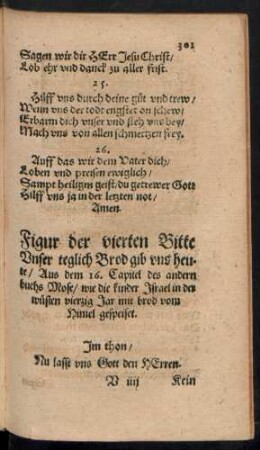 301
Sagen wir dir HErr Jesu Christ/
Lob ehr vnd danck zu aller frist.
25.
Hilff vns durch deine güt vnd trew/
Wenn vns der todt engstet on schew/
Erbarm dich vnser vnd steh vns bey/
Mach vns von allen schmertzen frey.
26.
Auff das wir dem Vater dich/
Loben vnd preisen ewiglich/
Sampt heiligm geist/du getrewer Gott
Hilff vns ja in der letzten not/
Amen.
Figur der vierten Bitte
Vnser teglich Brod gib vns heu-
te/ Aus dem 16. Capitel des andern
buchs Mose/ wie die kinder Israel in der
wüsten vierzig Jar mit brod vom
Himel gespeiset.
Im thon/
Nu lasst vns Gott den HErren.
V iiij Kein